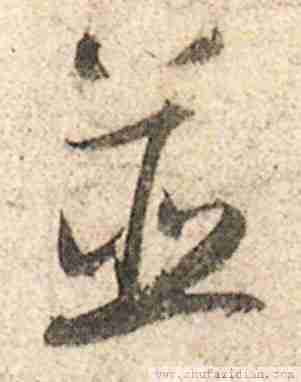 並
www.shufazidian.com